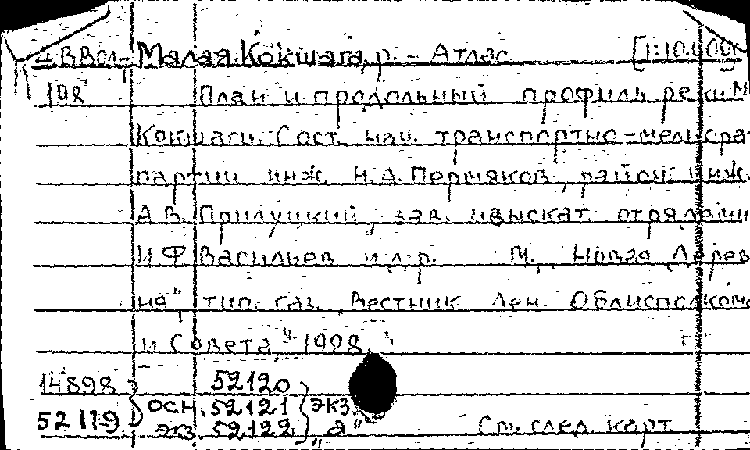 4 В Вол- Малая Кокшага, р. - Атлас [1:10.000
198 План и продольный профиль реки М.
Кокшаги. Сост. нач. транспортно-мелиорат
партии инж. Н.А. Пермяков, район. инж.
А.В. Прилуцкий, зав. изыскат. отрядами
И.Ф. Васильев и др. М., "Новая Дерев
ня", тип. газ. "Вестник Лен. Облисполкома
и Совета", 1928.
14898 52120
52119 осн. 52121 экз.
экз. 52122 "а" См. след. карт